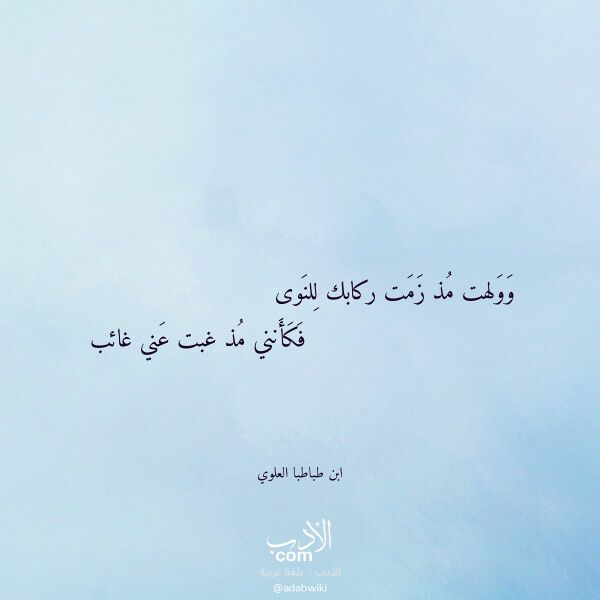 وَوَلهت مُذ زَمَت ركابك لِلنَوى
فَكَأَنني مُذ غبت عَني غائب
ابن طباطبا العلوي
الأدب
com
الأدب .. بلغة عربية
@adabwiki